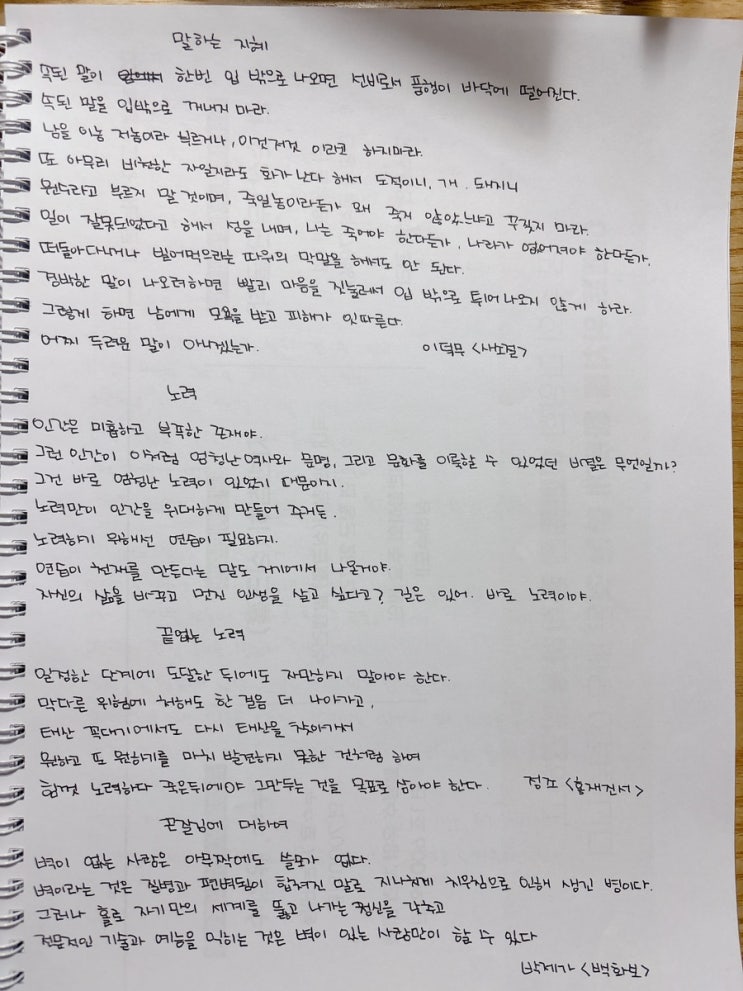 말하는 지혜
속된 말이 한번 입 밖으로 나오면 선비로서 품행이 바닥에 떨어진다.
속된 말을 입밖으로 꺼내지 마라.
남을 이놈 저놈이라 부르거나, 이것저것 이라고 하지마라.
또 아무리 비천한 자일지라도 화가 난다 해서 도적이니, 개. 돼지니
원수라고 부르지 말 것이며, 죽일놈이라든가 왜 죽지 않았느냐고 꾸짖지 마라.
일이 잘못되었다고 해서 성을 내며, 나는 죽어야 한다든가, 나라가 엎어져야 한다든가.
떠돌아다니거나 빌어먹으라는 따위의 막말을 해서도 안 된다.
경박한 말이 나오려하면 빨리 마음을 짓눌러서 입 밖으로 튀어 나오지 않게 하라.
그렇게 하면 남에게 모욕을 받고 피해가 잇따른다.
어찌 두려운 말이 아니겠는가. 이덕무 <사소절>
노력
인간은 미흡하고 부족한 존재야.
그런 인간이 이처럼 엄청난 역사와 문명, 그리고 문화를 이룩할 수 있었던 비결은 무엇일까?
그건 바로 엄청난 노력이 있었기 때문이지.
노력만이 인간을 위대하게 만들어 주거든.
노력하기 위해선 연습이 필요하지.
연습이 천재를 만든다는 말도 거기에서 나온거야.
자신의 삶을 바꾸고 멋진 인생을 살고 싶다고? 길은 있어. 바로 노력이야.
끝없는 노력
일정한 단계에 도달한 뒤에도 자만하지 말아야 한다.
막다른 위험에 처해도 한 걸음 더 나아가고,
태산 꼭대기에서도 다시 태산을 찾아가서
원하고 또 원하기를 마치 발견하지 못한 것처럼 하여
힘껏 노력하다 죽은뒤에야 그만두는 것을 목표로 삼아야 한다. 정조 <홍재전서>
끈질김에 대하여
벽이 없는 사람은 아무짝에도 쓸모가 없다.
벽이라는 것은 질병과 편벽됨이 합쳐진 말로 지나치게 치우침으로 인해 생긴 병이다.
그러나 홀로 자기만의 세계를 뚫고 나가는 정신을 갖추고
전문적인 기술과 예능을 익히는 것은 벽이 있는 사람만이 할 수 있다
박제가 <백화보>